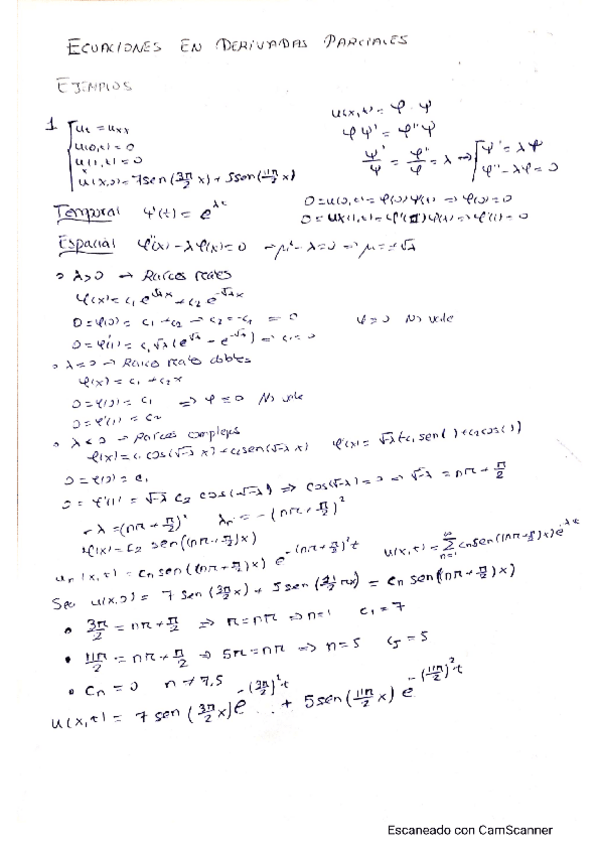 ECUACIONES EN DERIVADAS PARCIALES
EJEMPLOS
1 u_t = u_xx
u(0,t) = 0
u_x(1,t) = 0
u(x,0) = 7sen(3π/2 x) + 5sen(11π/2 x)
u(x,t) = φ · ψ
φψ' = φ''ψ
ψ'/ψ = φ''/φ = λ ⇒ ψ' = λψ
φ'' - λφ = 0
Temporal ψ(t) = e^λt
0 = u(0,t) = φ(0)ψ(t) ⇒ φ(0) = 0
0 = ux(1,t) = φ'(1)ψ(t) ⇒ φ'(1) = 0
Espacial φ''(x) - λφ(x) = 0 → μ² - λ = 0 ⇒ μ = ±√λ
λ > 0 → Raíces reales
φ(x) = c₁ e^√λx + c₂ e^-√λx
0 = φ(0) = c₁ + c₂ → c₂ = -c₁ = 0 φ = 0 No vale
0 = φ'(1) = c₁√λ (e^√λ - e^-√λ) ⇒ c₁ = 0
λ = 0 → Raíces reales dobles
φ(x) = c₁ + c₂x
0 = φ(0) = c₁ ⇒ φ = 0 No vale
0 = φ'(1) = c₂
λ < 0 → Raíces complejas
φ(x) = c₁ cos(√-λ x) + c₂ sen(√-λ x) φ'(x) = √-λ(-c₁ sen( ) + c₂ cos( ))
0 = φ(0) = c₁
0 = φ'(1) = √-λ c₂ cos(√-λ) ⇒ cos(√-λ) = 0 ⇒ √-λ = nπ + π/2
-λ = (nπ + π/2)² λn = -(nπ + π/2)²
φ(x) = c₂ sen((nπ + π/2)x)
un(x,t) = cn sen((nπ + π/2)x) e^-(nπ + π/2)²t u(x,t) = Σ n=1 ∞ cn sen((nπ + π/2)x) e^λt
u(x,0) = 7 sen(3π/2 x) + 5 sen(11/2 πx) = cn sen((nπ + π/2)x)
• 3π/2 = nπ + π/2 ⇒ π = nπ ⇒ n = 1 c₁ = 7
• 11π/2 = nπ + π/2 ⇒ 5π = nπ ⇒ n = 5 c₅ = 5
• cn = 0 n ≠ 7,5
u(x,t) = 7 sen(3π/2 x) e^-(3π/2)²t + 5 sen(11π/2 x) e^-(11π/2)²t
Escaneado con CamScanner